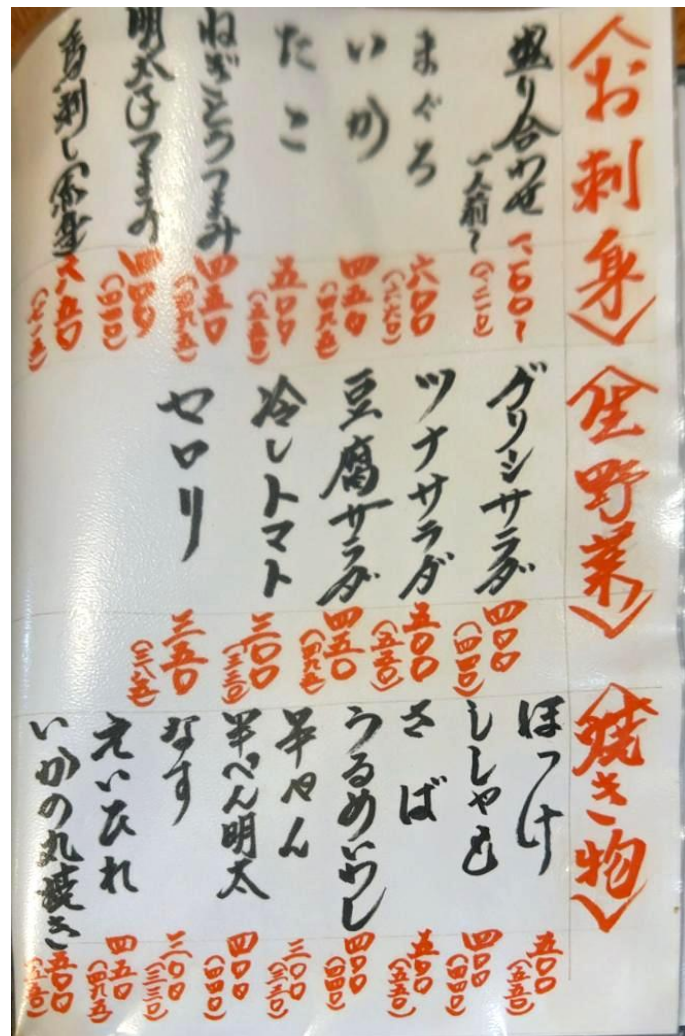 〈お刺身〉
盛り合わせ 一人前〜 一、一〇〇〜 (一二一〇)
まぐろ 六〇〇 (六六〇)
いか 四五〇 (四九五)
たこ 五〇〇 (五五〇)
ねぎとろつまみ 四五〇 (四九五)
明太子つまみ 四〇〇 (四四〇)
馬刺し 六五〇 (七一五)
〈生野菜〉
グリーンサラダ 四〇〇 (四四〇)
ツナサラダ 五〇〇 (五五〇)
豆腐サラダ 四五〇 (四九五)
冷しトマト 三〇〇 (三三〇)
セロリ 三五〇 (三八五)
〈焼き物〉
ほっけ 五〇〇 (五五〇)
ししゃも 四〇〇 (四四〇)
さば 五〇〇 (五五〇)
うるめいわし 四〇〇 (四四〇)
半ぺん 三〇〇 (三三〇)
半ぺん明太 四〇〇 (四四〇)
なす 三〇〇 (三三〇)
えいひれ 四五〇 (四九五)
いかの丸焼き 五〇〇 (五五〇)